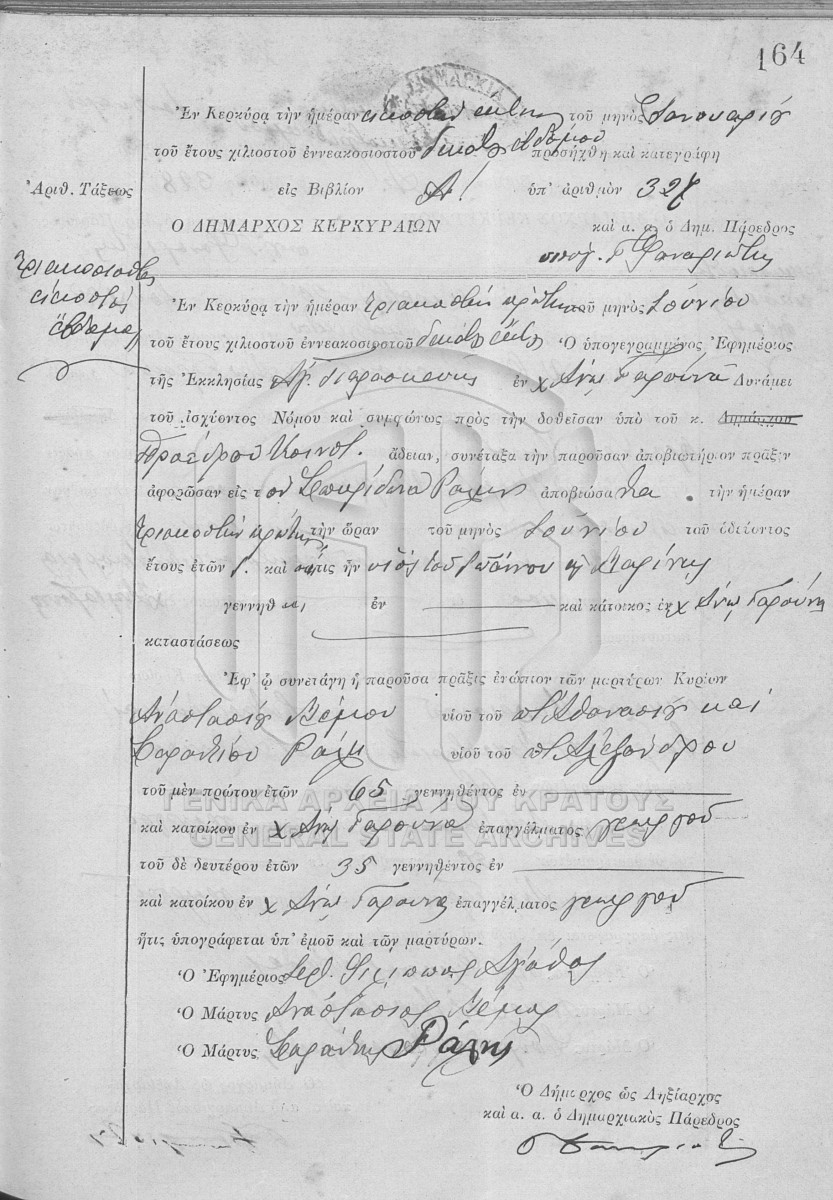 164
ΔΗΜΑΡΧΙΑ
Ἐν Κερκύρᾳ τὴν ἡμέραν εἰκοστὴν ἕκτην τοῦ μηνὸς Ἰανουαρίου
τοῦ ἔτους χιλιοστοῦ ἐννεακοσιοστοῦ δεκάτου ἑβδόμου προσήχθη καὶ κατεγράφη
Ἀριθ. Τάξεως εἰς Βιβλίον Α' ὑπ' ἀριθμὸν 327
Ο ΔΗΜΑΡΧΟΣ ΚΕΡΚΥΡΑΙΩΝ καὶ α. α. ὁ Δημ. Πάρεδρος
τριακοσιοστὸς
εἰκοστὸς
ἕβδομος
Ἐν Κερκύρᾳ τὴν ἡμέραν τριακοστὴν πρώτην τοῦ μηνὸς Ἰουνίου
τοῦ ἔτους χιλιοστοῦ ἐννεακοσιοστοῦ δεκάτου ἕκτου Ὁ ὑπογεγραμμένος Ἐφημέριος
τῆς Ἐκκλησίας Ἁγ. Παρασκευῆς ἐν χ Ἄνω Γαρούνα Δυνάμει
τοῦ ἰσχύοντος Νόμου καὶ συμφώνως πρὸς τὴν δοθεῖσαν ὑπὸ τοῦ κ. Δημάρχου
Προέδρου Κοινοτ. ἄδειαν, συνέταξα τὴν παροῦσαν ἀποβιωτήριον πρᾶξιν
ἀφορῶσαν εἰς τὸν Σπυρίδωνα Ράλλη ἀποβιώσαντα τὴν ἡμέραν
τριακοστὴν πρώτην τὴν ὥραν τοῦ μηνὸς Ἰουνίου τοῦ ἰδίοντος
ἔτους ἐτῶν καὶ ὅστις ἦν υἱὸς τοῦ Ἰωάννου Μαρίνης
γεννηθεὶς ἐν καὶ κάτοικος ἐν χ Ἄνω Γαρούνα
καταστάσεως
Ἐφ' ᾧ συνετάγη ἡ παροῦσα πρᾶξις ἐνώπιον τῶν μαρτύρων Κυρίων
Ἀναστασίου Βέμου υἱοῦ τοῦ π. Ἀθανασίου καὶ
Σαραντίου Ράλλη υἱοῦ τοῦ π. Ἀλεξάνδρου
τοῦ μὲν πρώτου ἐτῶν 65 γεννηθέντος ἐν
ΓΕΝΙΚΑ ΑΡΧΕΙΑ ΤΟΥ ΚΡΑΤΟΥΣ
καὶ κατοίκου ἐν χ Ἄνω Γαρούνα ἐπαγγέλματος γεωργοῦ
GENERAL STATE ARCHIVES
τοῦ δὲ δευτέρου ἐτῶν 35 γεννηθέντος ἐν
καὶ κατοίκου ἐν χ Ἄνω Γαρούνα ἐπαγγέλματος γεωργοῦ
ἥτις ὑπογράφεται ὑπ' ἐμοῦ καὶ τῶν μαρτύρων.
Ὁ Ἐφημέριος Φίλιππος
Ὁ Μάρτυς Ἀναστάσιος Βέμος
Ὁ Μάρτυς Σαράντης Ράλλης
Ὁ Δήμαρχος ὡς Ληξίαρχος
καὶ α. α. ὁ Δημαρχιακὸς Πάρεδρος